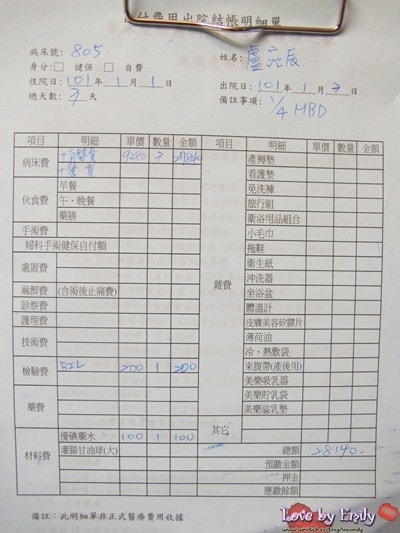 付費用出院結帳明細單
病床號: 805 姓名:
身分:□ 健保 □ 自費
住院日: 101 年 1 月 1 日 出院日: 101 年 1 月 3 日
總天數: 3 天 備註事項: 1/4 MBD
項目 明細 單價 數量 金額 項目 明細 單價 數量 金額
病床費 9280 3 27840 雜費 產褥墊
看護墊
伙食費 早餐 免洗褲
午、晚餐 旅行組
藥膳 衛浴用品組合
手術費 小毛巾
婦科手術健保自付額 拖鞋
處置費 衛生紙
沖洗器
麻醉費 (含術後止痛費) 坐浴盆
診察費 體溫計
護理費 皮膚美容矽膠片
技術費 薄荷油
冷、熱敷袋
檢驗費 BIL 200 1 200 束腹帶(產後用)
美樂吸乳器
藥費 美樂貯乳袋
美樂溢乳墊
材料費 優碘藥水 100 1 100 其它
灌腸甘油球(大) 總額 28140
預繳金額
押金
應繳餘額
備註：此明細單非正式醫療費用收據
Love by Emily